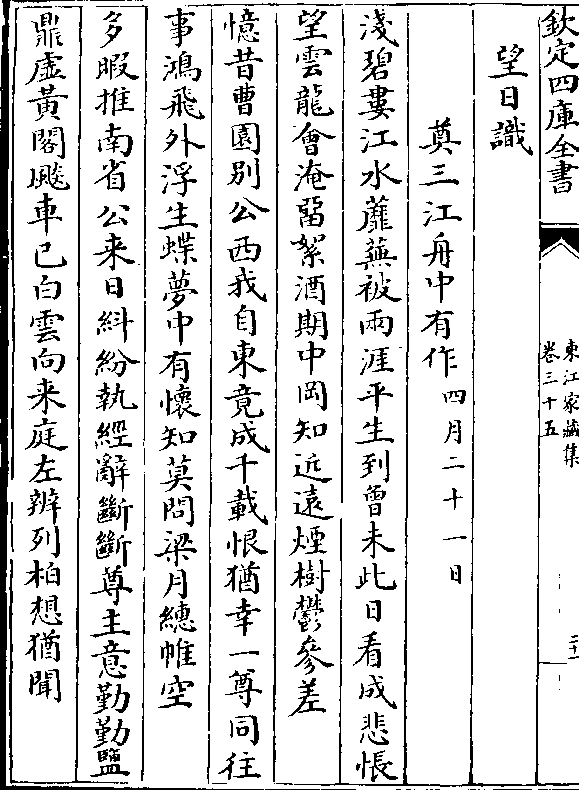 欽定四庫全書
東江家藏集
卷三十五
望日識
奠三江舟中有作四月二十一日
淺碧婁江水蘼蕪被兩涯平生到曾未此日看成悲悵
望雲龍會淹留絮酒期中岡知近遠煙樹鬱參差
憶昔曹園别公西我自東竟成千載恨猶幸一尊同往
事鴻飛外浮生蝶夢中有懷知莫問梁月繐帷空
多暇推南省公来日糾紛執經辭斷斷尊主意勤勤鹽
鼎虛黃閣飈車已白雲向来庭左辨列柏想猶聞